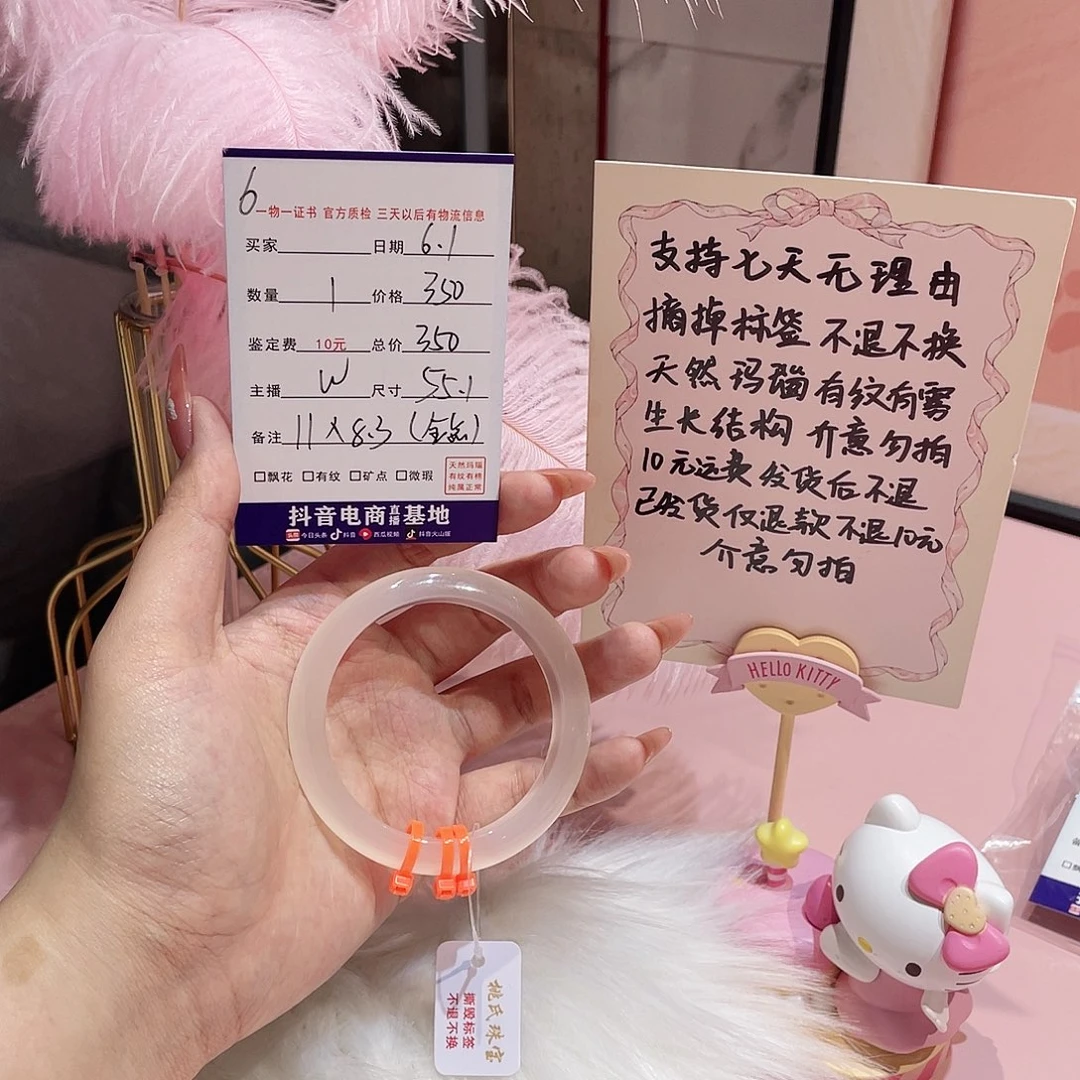 6
一物一证书 官方质检 三天以后有物流信息
买家 日期 6.1
数量 1 价格 350
鉴定费 10元 总价 350
主播 W 尺寸 55.1
备注 11×8.3
□飘花 □有纹 □矿点 □微瑕
天然玛瑙
有纹有棉
纯属正常
抖音电商直播基地
头条 今日头条 抖音 西瓜视频 抖音火山版
支持七天无理由
摘掉标签 不退不换
天然玛瑙有纹有雾
生长结构 介意勿拍
10元运费发货后不退
已发货仅退款不退10元
介意勿拍
HELLO KITTY
桃氏珠宝
撕毁标签
不退不换